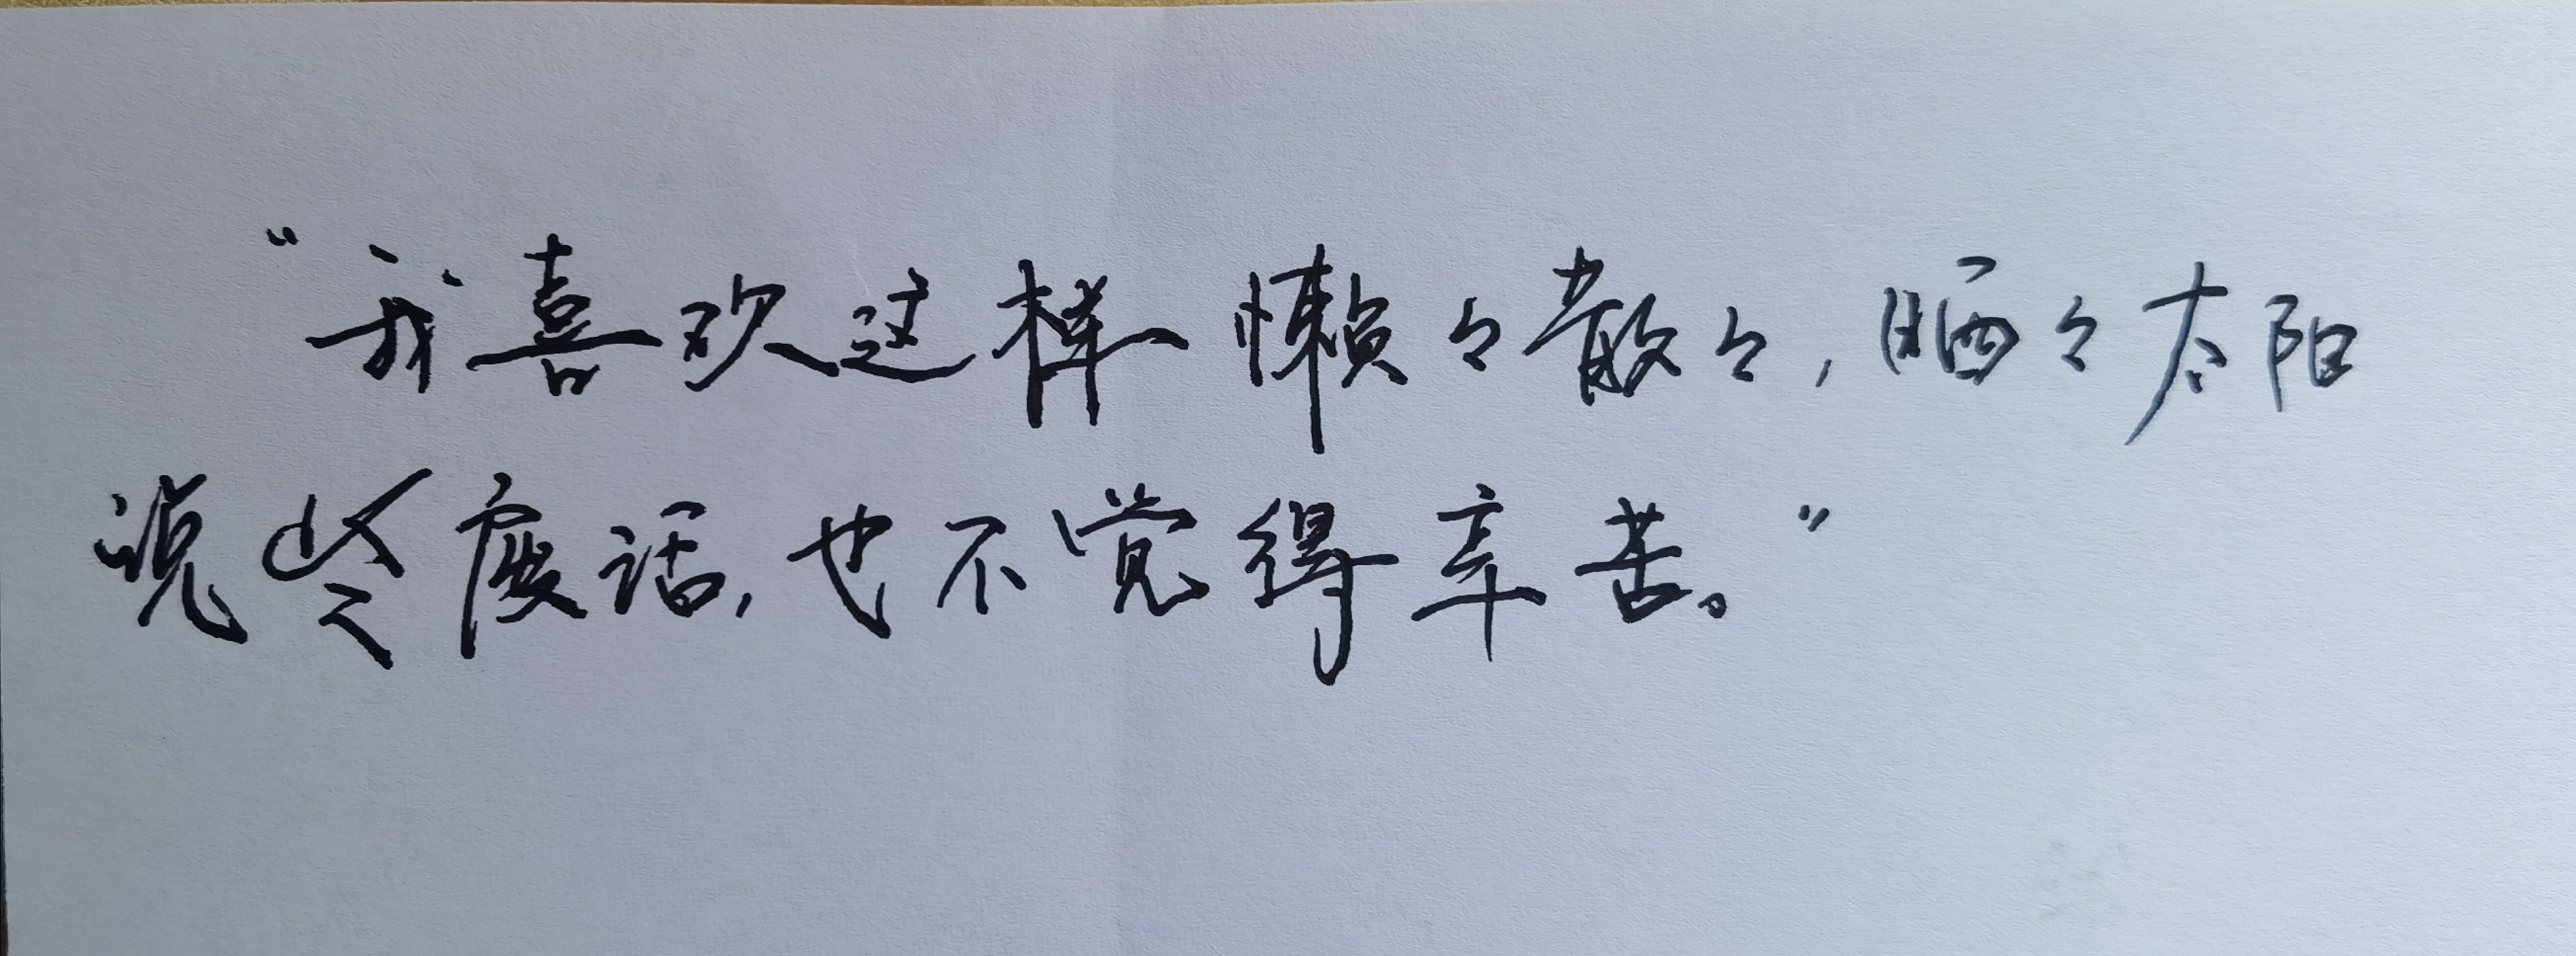 “我喜欢这样懒々散々，晒々太阳
说些废话，也不觉得辛苦。”